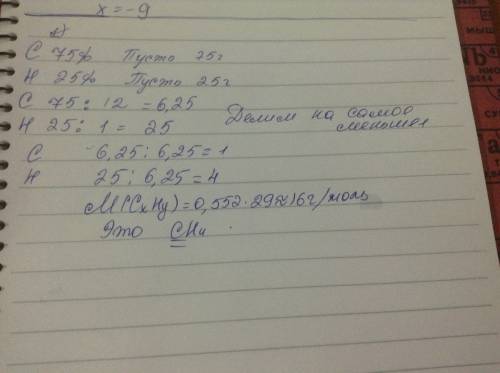 x = -9
1)
C 75% Пусть 75г
H 25% Пусть 25г
C 75 : 12 = 6,25
H 25 : 1 = 25 Делим на самое меньшее
C 6,25 : 6,25 = 1
H 25 : 6,25 = 4
M(CxHy) = 0,552 · 29 ≈ 16 г/моль
Это CH4
МЫШ